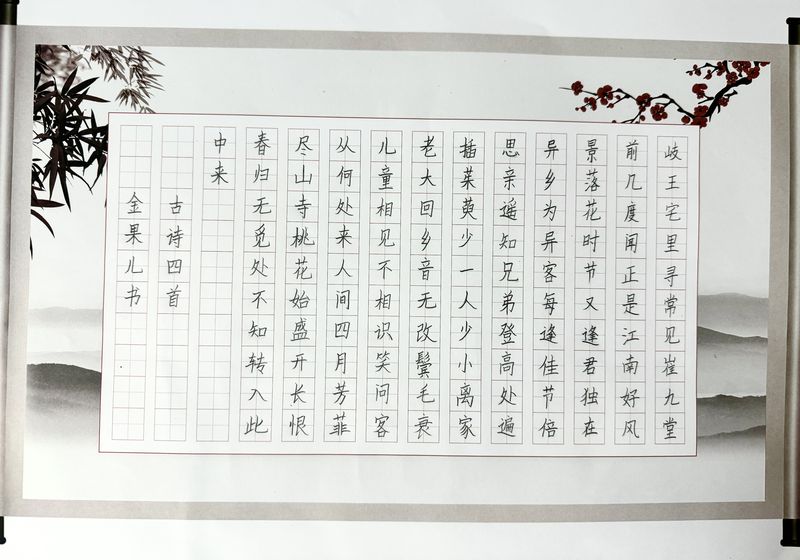 岐王宅里寻常见崔九堂
前几度闻正是江南好风
景落花时节又逢君独在
异乡为异客每逢佳节倍
思亲遥知兄弟登高处遍
插茱萸少一人少小离家
老大回乡音无改鬓毛衰
儿童相见不相识笑问客
从何处来人间四月芳菲
尽山寺桃花始盛开长恨
春归无觅处不知转入此
中来
古诗四首
金果儿书